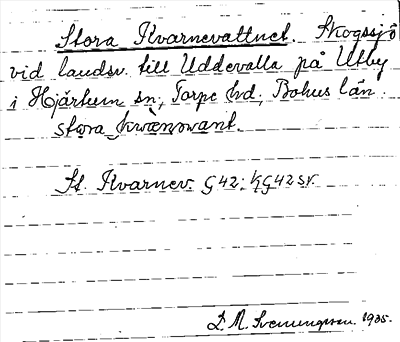 Stora Kvarnevattnet. Skogssjö
vid landsv. till Uddevalla på Utby
i Hjärtum sn, Torpe hd, Bohus län.
stora kwænəvant.
St. Kvarnev. G42; KG42sv.
D. M. Svenungsson. 1935.